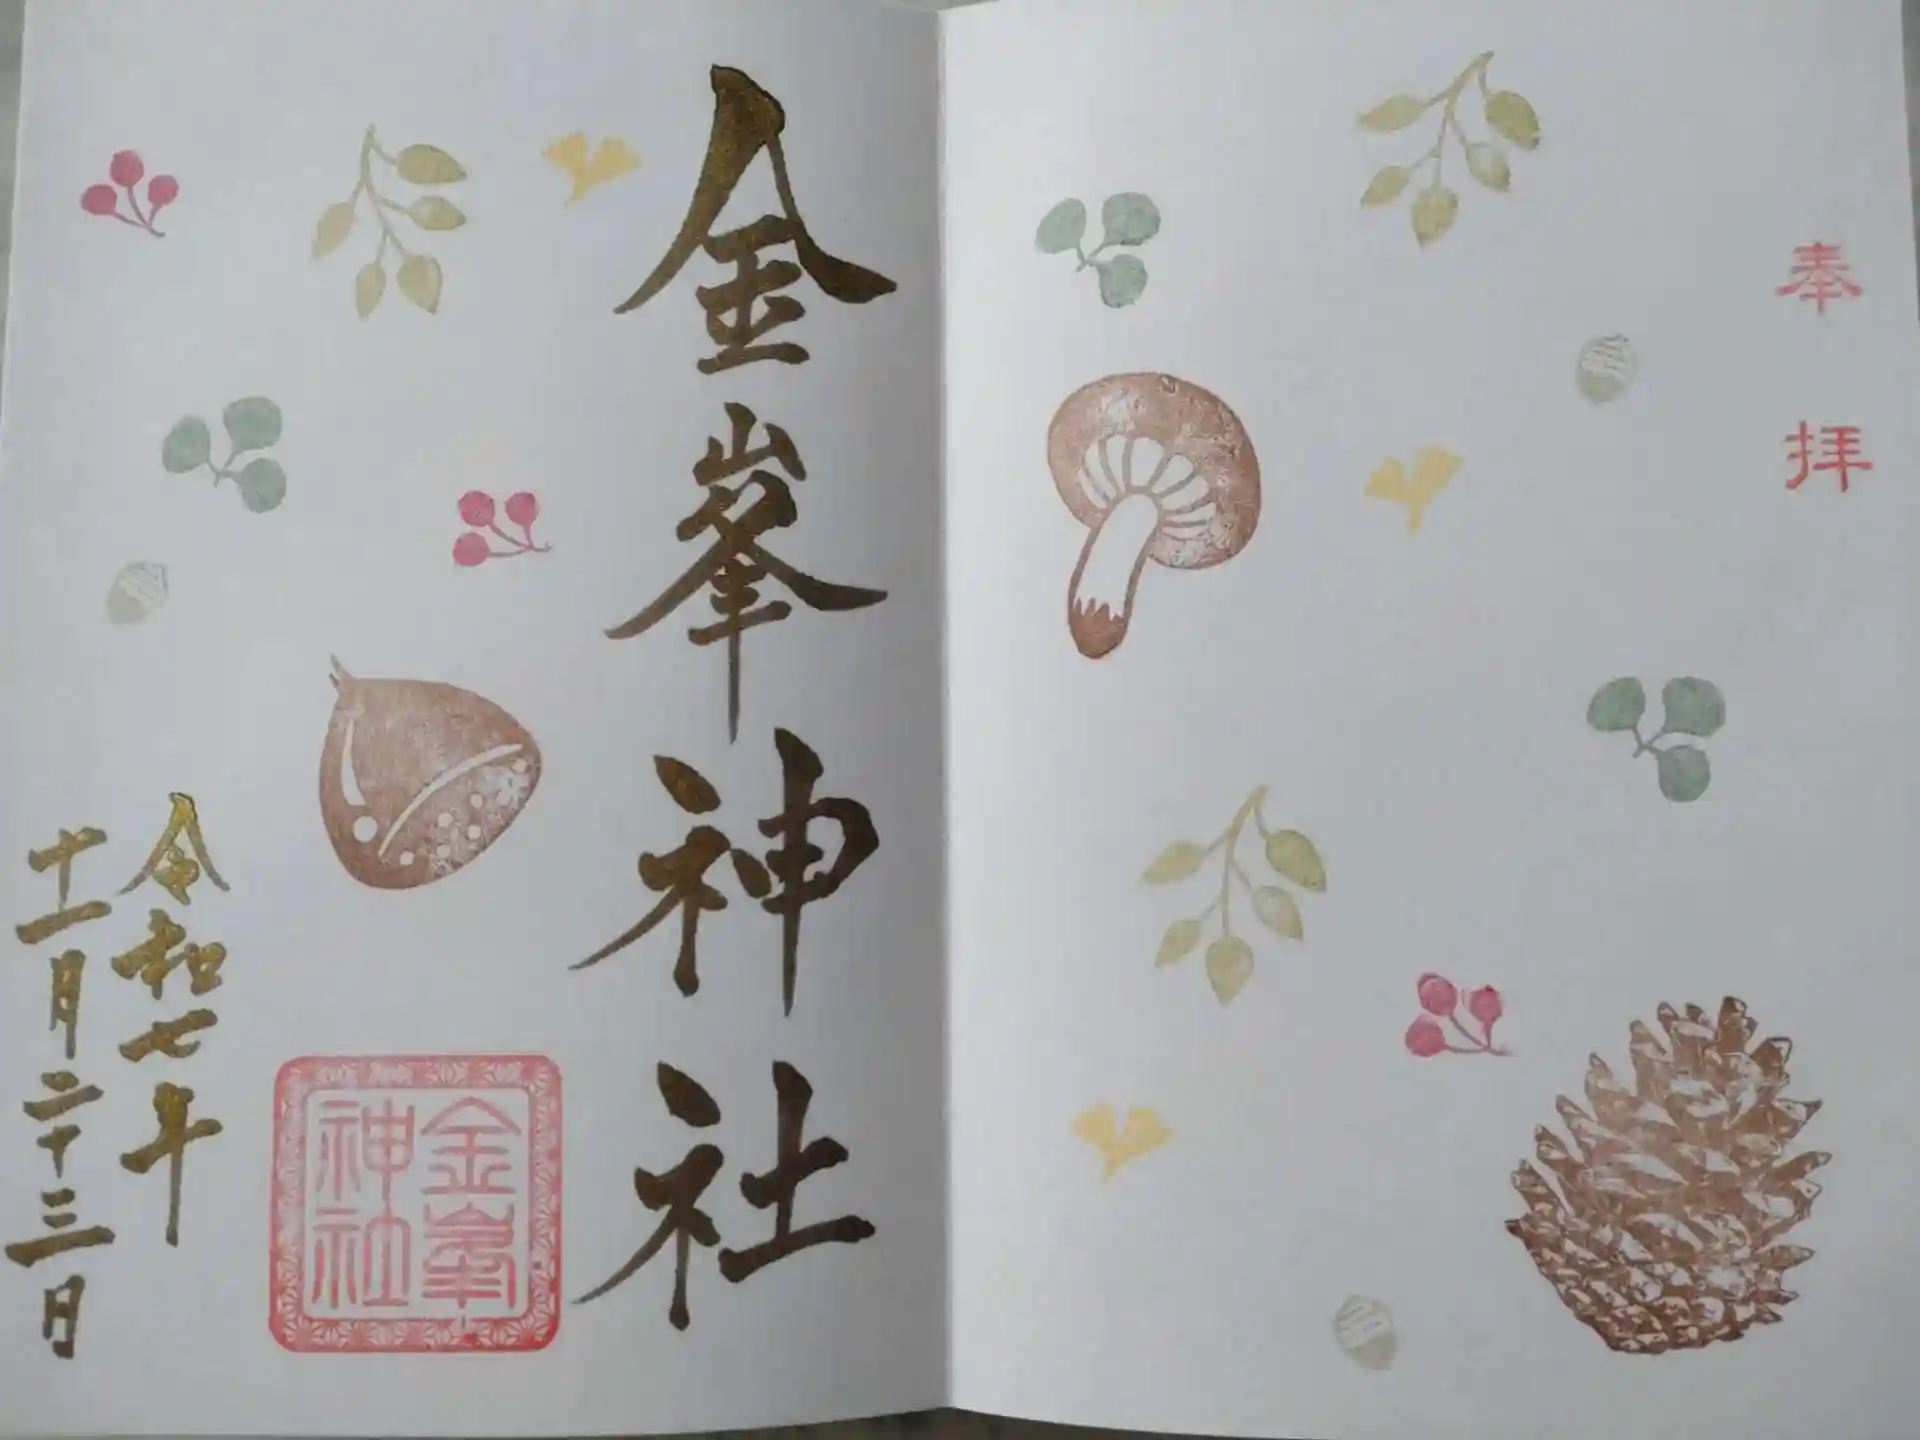 奉拝
金峯神社
金峯
神社
令和七年
十一月二十三日